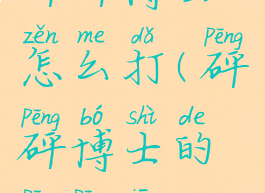 zěn me dǎ Pēng
怎么打(砰
Pēng bó shì de
砰博士的